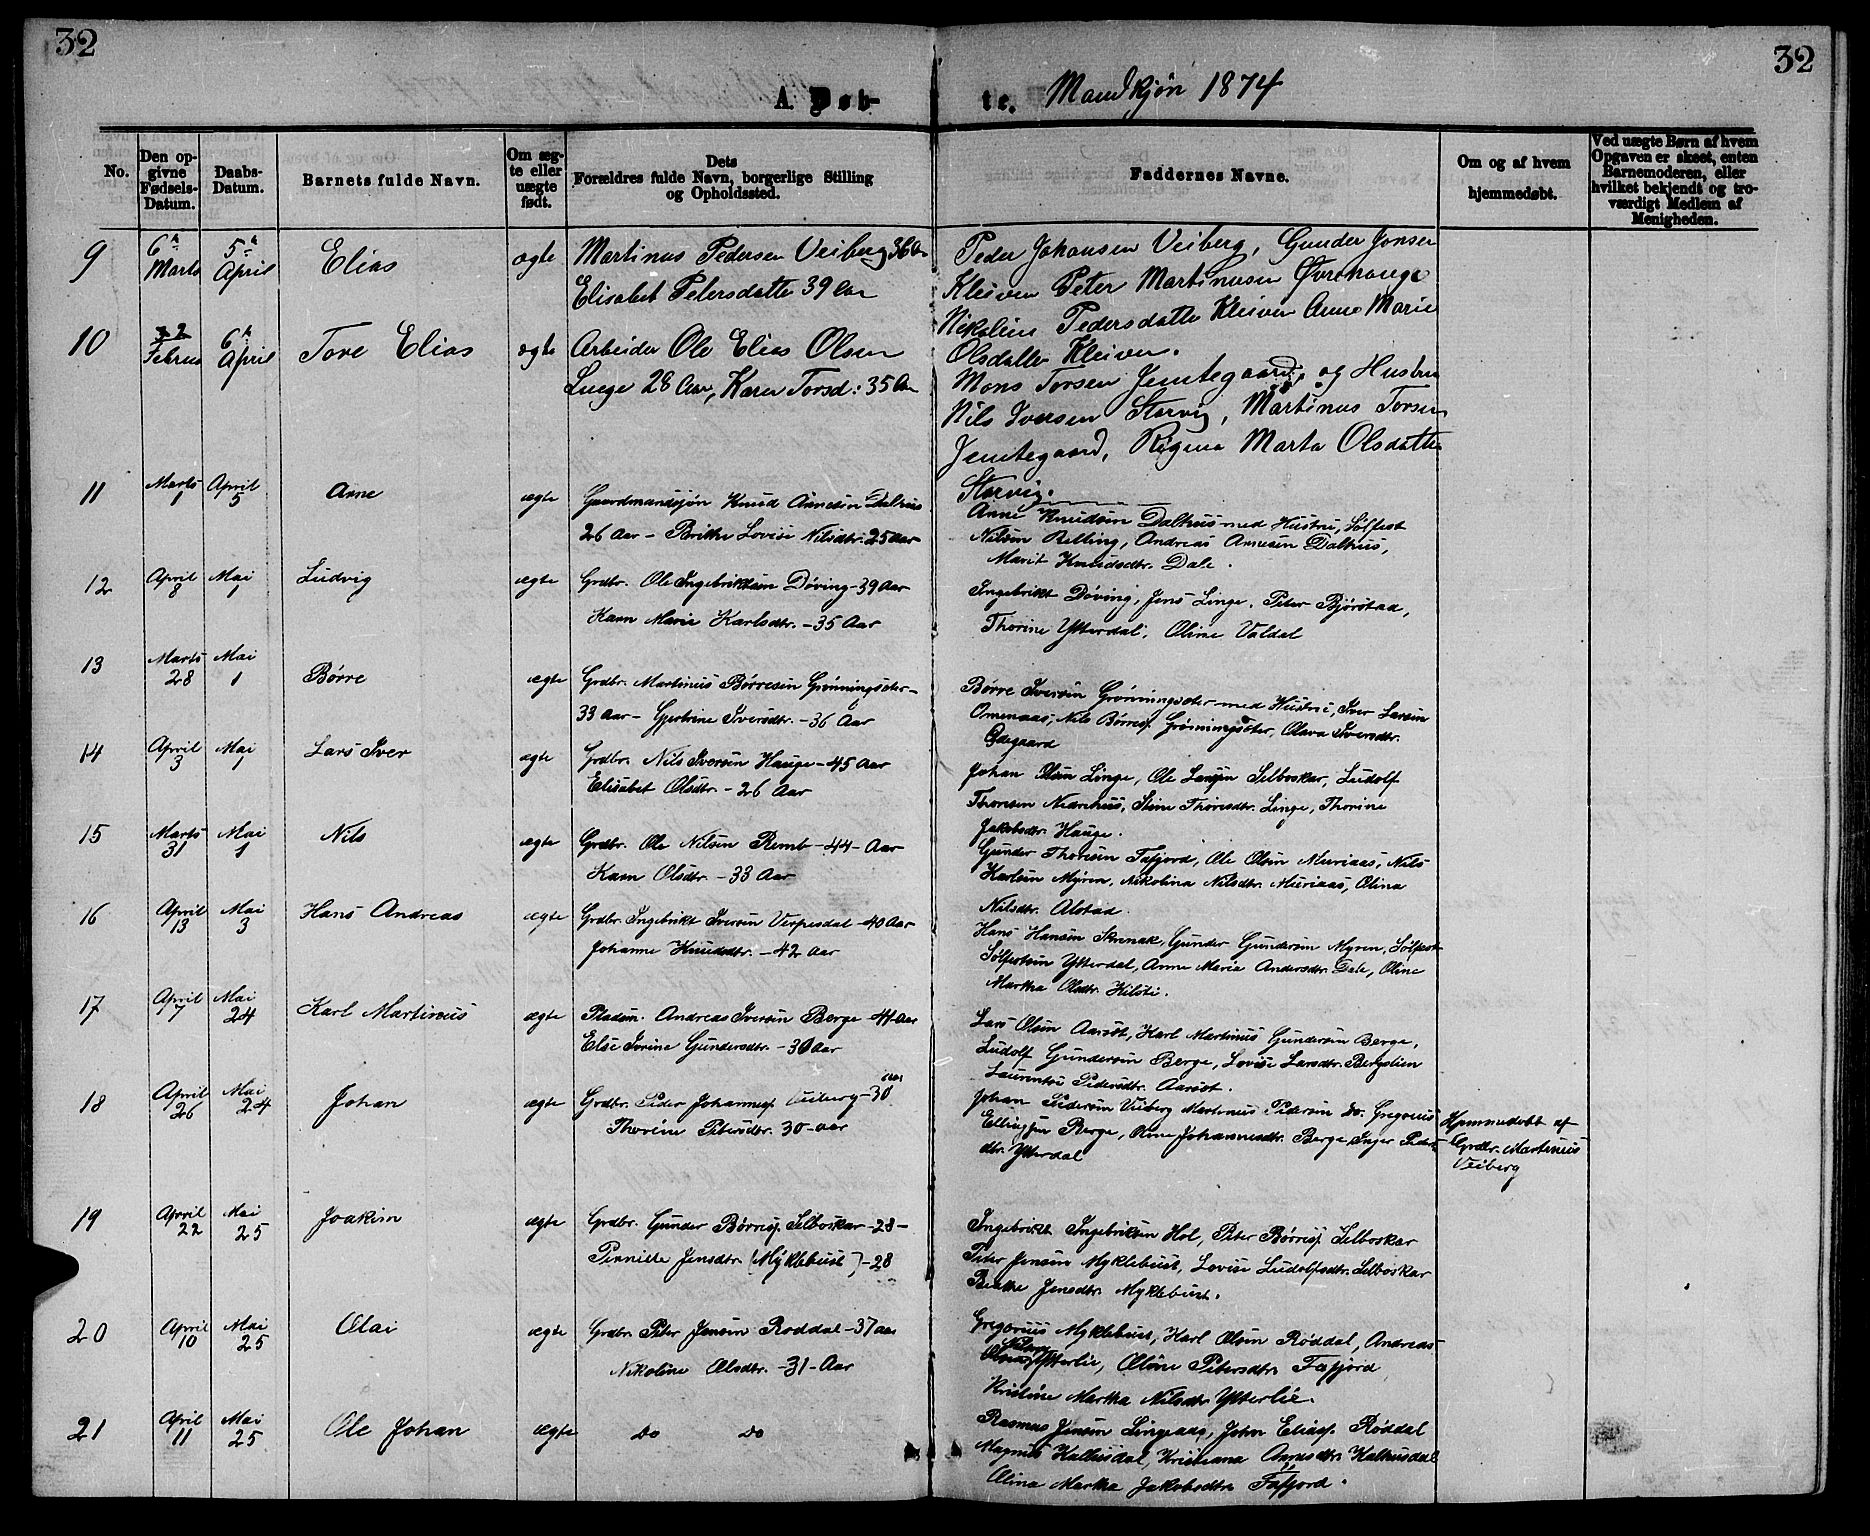 32
32
A. Døb-
te. Mandkjøn 1874
No.
Den op-
givne
Fødsels-
Datum.
Daabs-
Datum.
Barnets fulde Navn.
Om æg-
te eller
uægte
født.
Dets
Forældres fulde Navn, borgerlige Stilling
og Opholdssted.
Faddernes Navne.
Om og af hvem
hjemmedøbt.
Ved uægte Børn af hvem
Opgaven er skeet, enten
Barnemoderen, eller
hvilket bekjendt og tro-
værdigt Medlem af
Menigheden.
9
6te Marts
5te April
Elias
ægte
Martinus Pedersen Veiberg 36 Aar
Elisabet Petersdatte 39 Aar
Peder Johansen Veiberg, Gunder Jonsen
Kleiven Peter Martinusen Øvrehauge
Nikoline Pedersdatte Kleiven Anne Marie
Olsdatte Kleiven.
10
2 Februa
6te April
Tore Elias
ægte
Arbeider Ole Elias Olsen
Linge 28 Aar, Karen Torsd: 35 Aar
Mons Torsen Jemtegaard, og Hustru
Nils Iversen Storvig, Martinus Torsen
Jemtegaard, Regine Marta Olsdatte
Storvig.
11
Marts 1
April 5
Arne
ægte
Gaardmandssøn Knud Arnesen Dalhus
26 Aar - Brithe Lovise Nilsdtr. 25 Aar
Arne Knudsen Dalhus med Hustru, Sølfest
Nilsen Relling, Andreas Arnesen Dalhus,
Marit Knudsdtr. Dale.
12
April 8
Mai 1
Ludvig
ægte
Grdbr. Ole Ingebriktsen Døving - 39 Aar
Karn Marie Karlsdtr. - 35 Aar
Ingebrikt Døving, Jens Linge, Peter Bjørstad,
Thorine Ytterdal, Oline Valdal
13
Marts 28
Mai 1
Børre
ægte
Grdbr. Martinus Børresen Grønningsæter -
33 Aar - Gjertrine Iversdtr. - 36 Aar
Børre Iversen Grønningsæter med Hustru, Iver Larsen
Omenaas, Nils Børres. Grønningsæter, Olava Iversdtr.
Ødegaard
14
April 3
Mai 1
Lars Iver
ægte
Grdbr. Nils Iversen Hauge - 45 Aar
Elisabet Olsdtr. - 26 Aar
Johan Olsen Linge, Ole Larsen Selboskar, Ludolf
Thoresen Nedrehus, Stine Thoresdtr. Linge, Thorine
Jakobsdtr. Hauge.
15
Marts 31
Mai 1
Nils
ægte
Grdbr. Ole Nilsen Remb - 44 - Aar
Karn Olsdtr. - 33 Aar
Gunder Thoresen Tafjord, Ole Olsen Muriaas, Nils
Karlsen Myren, Nikolina Nilsdtr. Muriaas, Olina
Nilsdtr. Alstad.
16
April 13
Mai 3
Hans Andreas
ægte
Grdbr. Ingebrikt Iversen Verpesdal - 40 Aar
Johanne Knudsdtr. - 42 Aar
Hans Hansen Skrenak, Gunder Gundersen Myren, Sølfest
Sølfestsen Ytterdal, Anne Maria Andersdtr. Dale, Oline
Martha Olsdtr. Kilsti.
17
April 7
Mai 24
Karl Martinus
ægte
Pladsm. Andreas Iversen Berge - 44 Aar
Else Serine Gundersdtr. - 30 Aar
Lars Olsen Aarset, Karl Martinus Gundersen Berge,
Ludolf Gundersen Berge, Lovise Larsdtr. Bergslien
Laurentse Pedersdtr. Aarset.
18
April 26
Mai 24
Johan
ægte
Grdbr. Peder Johannes. Veiberg - 30 Aar
Thorine Petersdtr. 30 - Aar
Johan Pedersen Veiberg Martinus Pedersen do. Gregorius
Ellingsen Berge, Anne Johannesdtr. Berge, Inger Peders-
dtr. Ytterdal
Hjemmedøbt af
Grdbr. Martinus
Veiberg
19
April 22
Mai 25
Joakim
ægte
Grdbr. Gunder Børres. Selboskar - 28 -
Pernille Jensdtr. (Myklebust) - 28
Ingebrikt Ingebriktsen Hol, Peter Børres. Selboskar
Peter Jensen Myklebust, Lovise Ludolfsdtr. Selboskar
Berthe Jensdtr. Myklebust.
20
April 10
Mai 25
Olai
ægte
Grdbr. Peter Jensen Røddal - 37 Aar
Nikoline Olsdtr. - 31 - Aar
Gregorius Myklebust, Karl Olsen Røddal, Andreas
Nilsen Ytterlie, Oline Petersdtr. Tafjord
Kristine Martha Nilsdtr. Ytterlie.
21
April 11
Mai 25
Ole Johan
ægte
Do Do
Rasmus Jensen Lingaas, John Elias. Røddal
Magnus Kalhusdal, Kristiana Arnesdtr. Kalhusdal
Olina Martha Jakobsdtr. Tafjord.